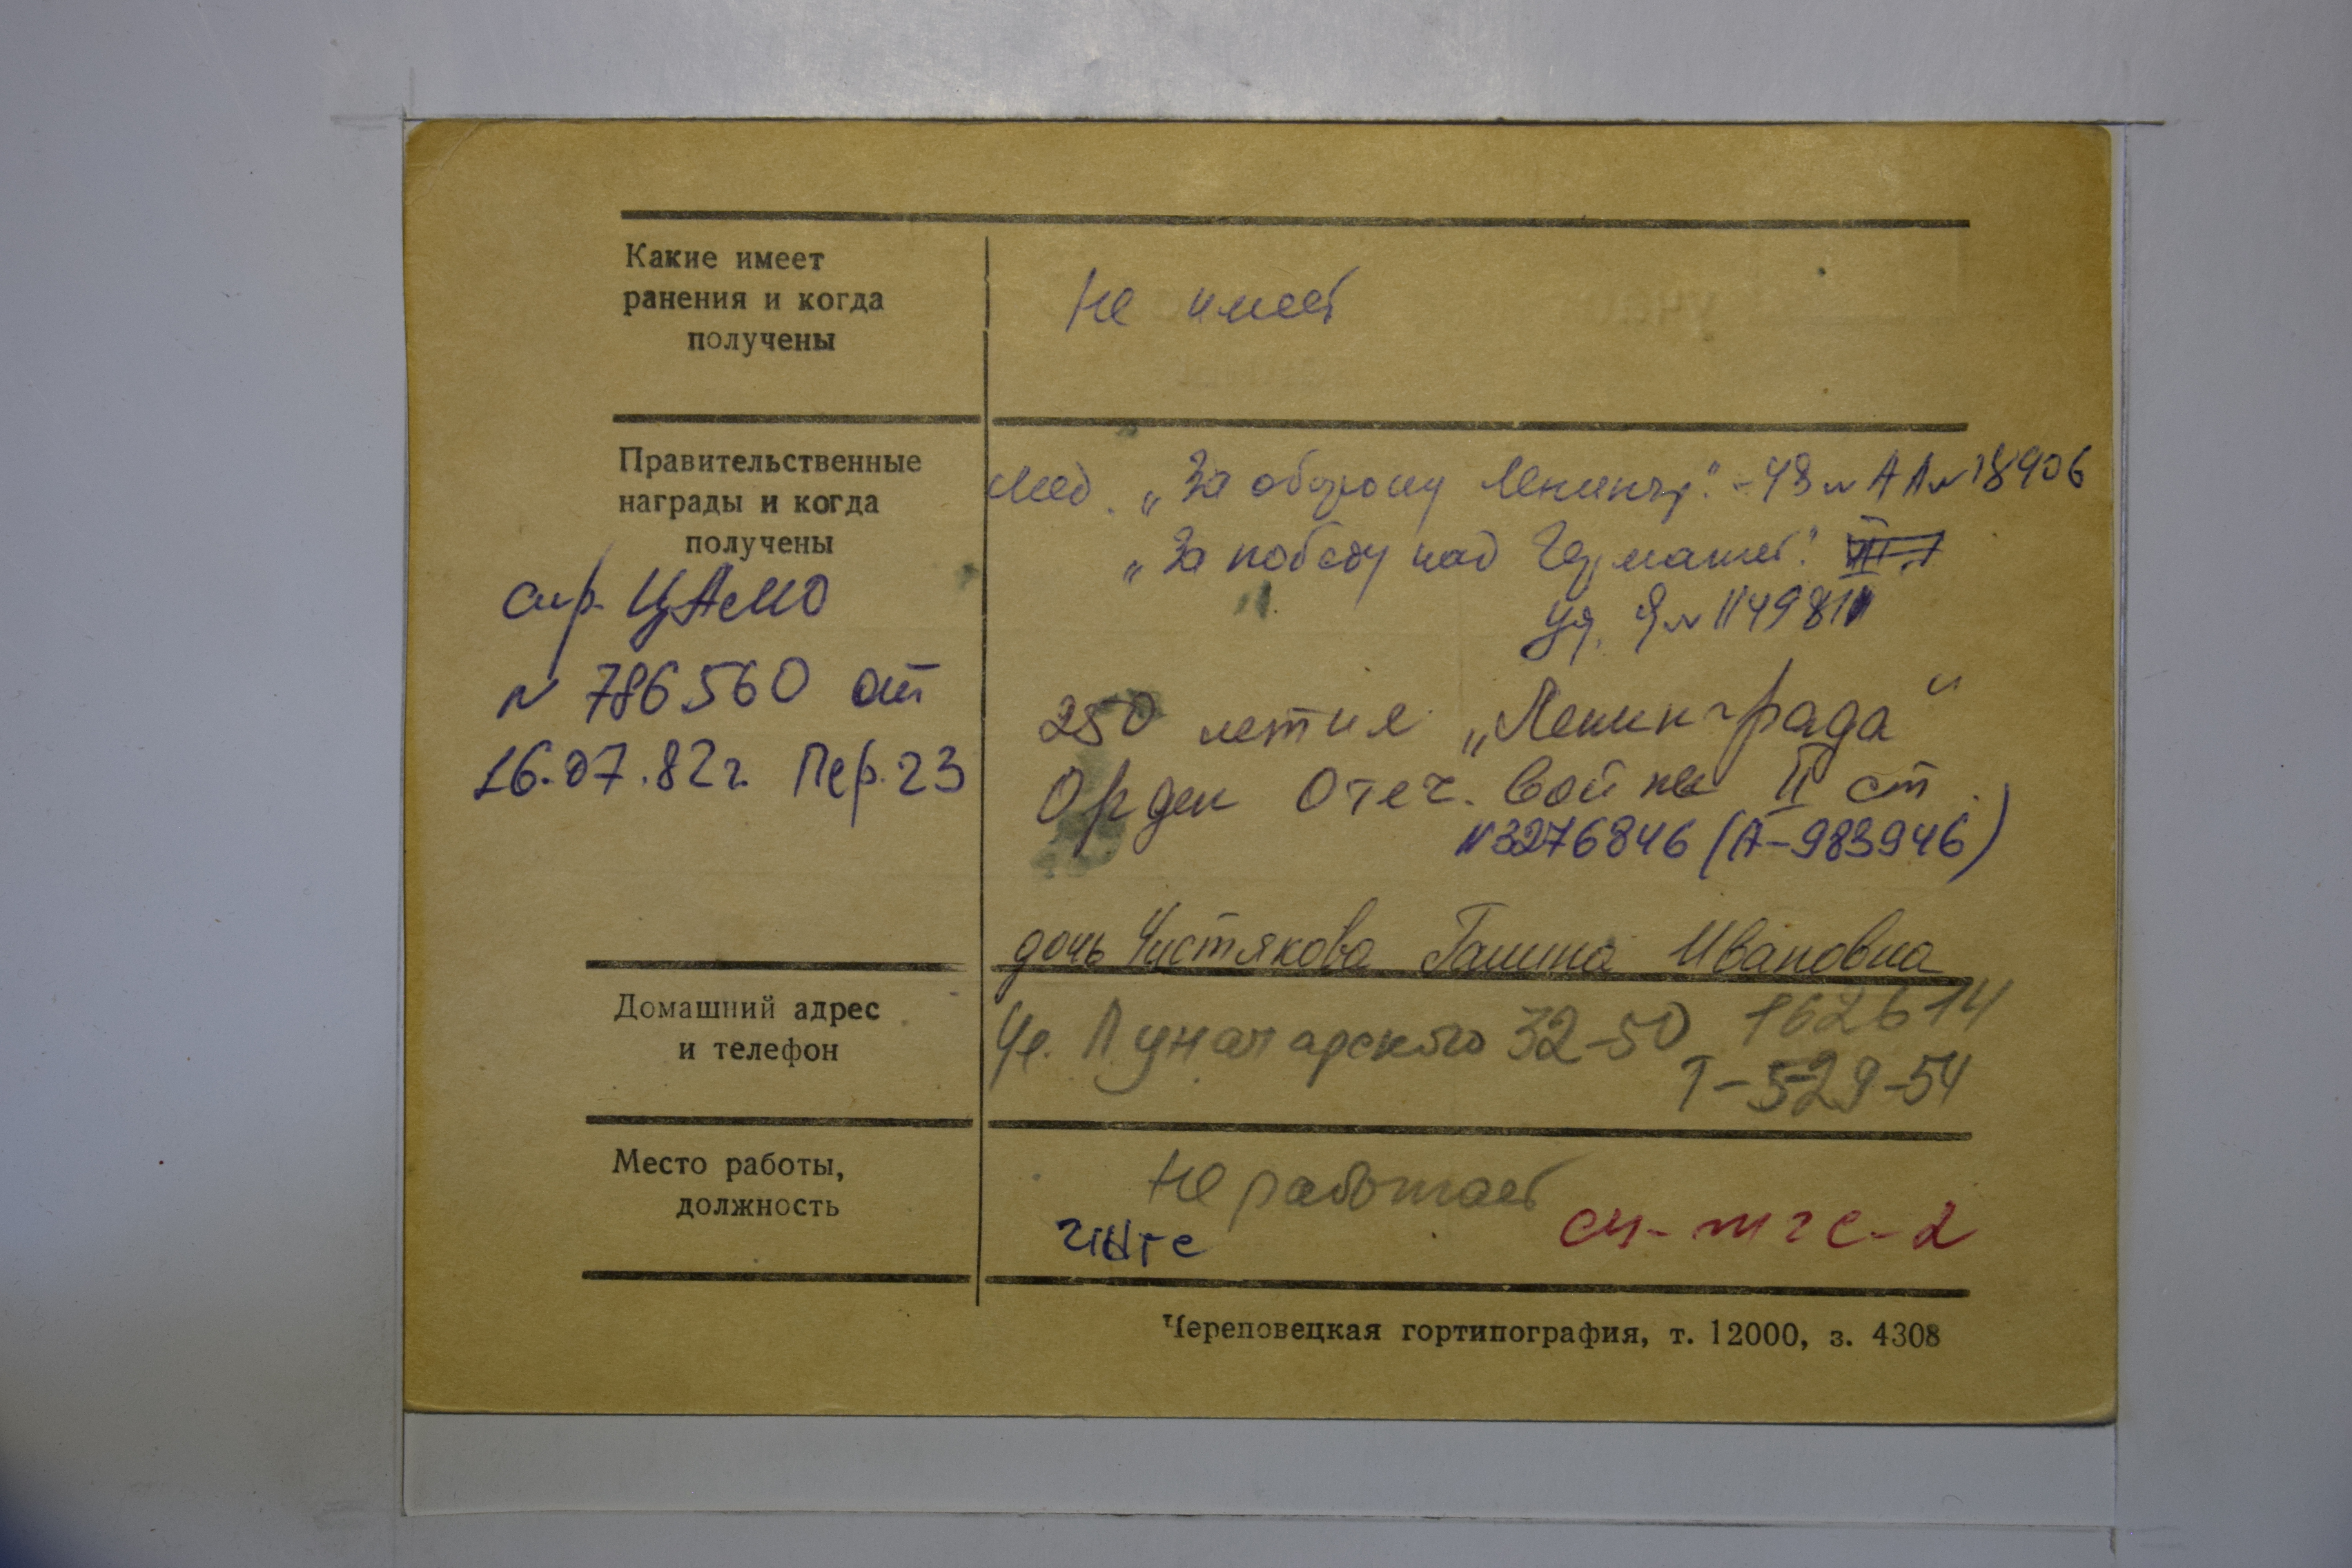 Какие имеет
ранения и когда
получены
Не имеет
Правительственные
награды и когда
получены
Мед. „За оборону Ленингр." - 43 № АА № 18906
„За победу над Германией"
уд. Я № 1149811
спр. ЦАМО
№ 786560 от
16.07.82г. Пер. 23
250 летия „Ленинграда"
Орден Отеч. Войны II ст.
№3276846 (А-983946)
дочь Чистякова Галина Ивановна
Домашний адрес
и телефон
Ул. Луначарского 32-50 162614
Т-529-54
Место работы,
должность
Не работает
Череповецкая гортипография, т. 12000, з. 4308